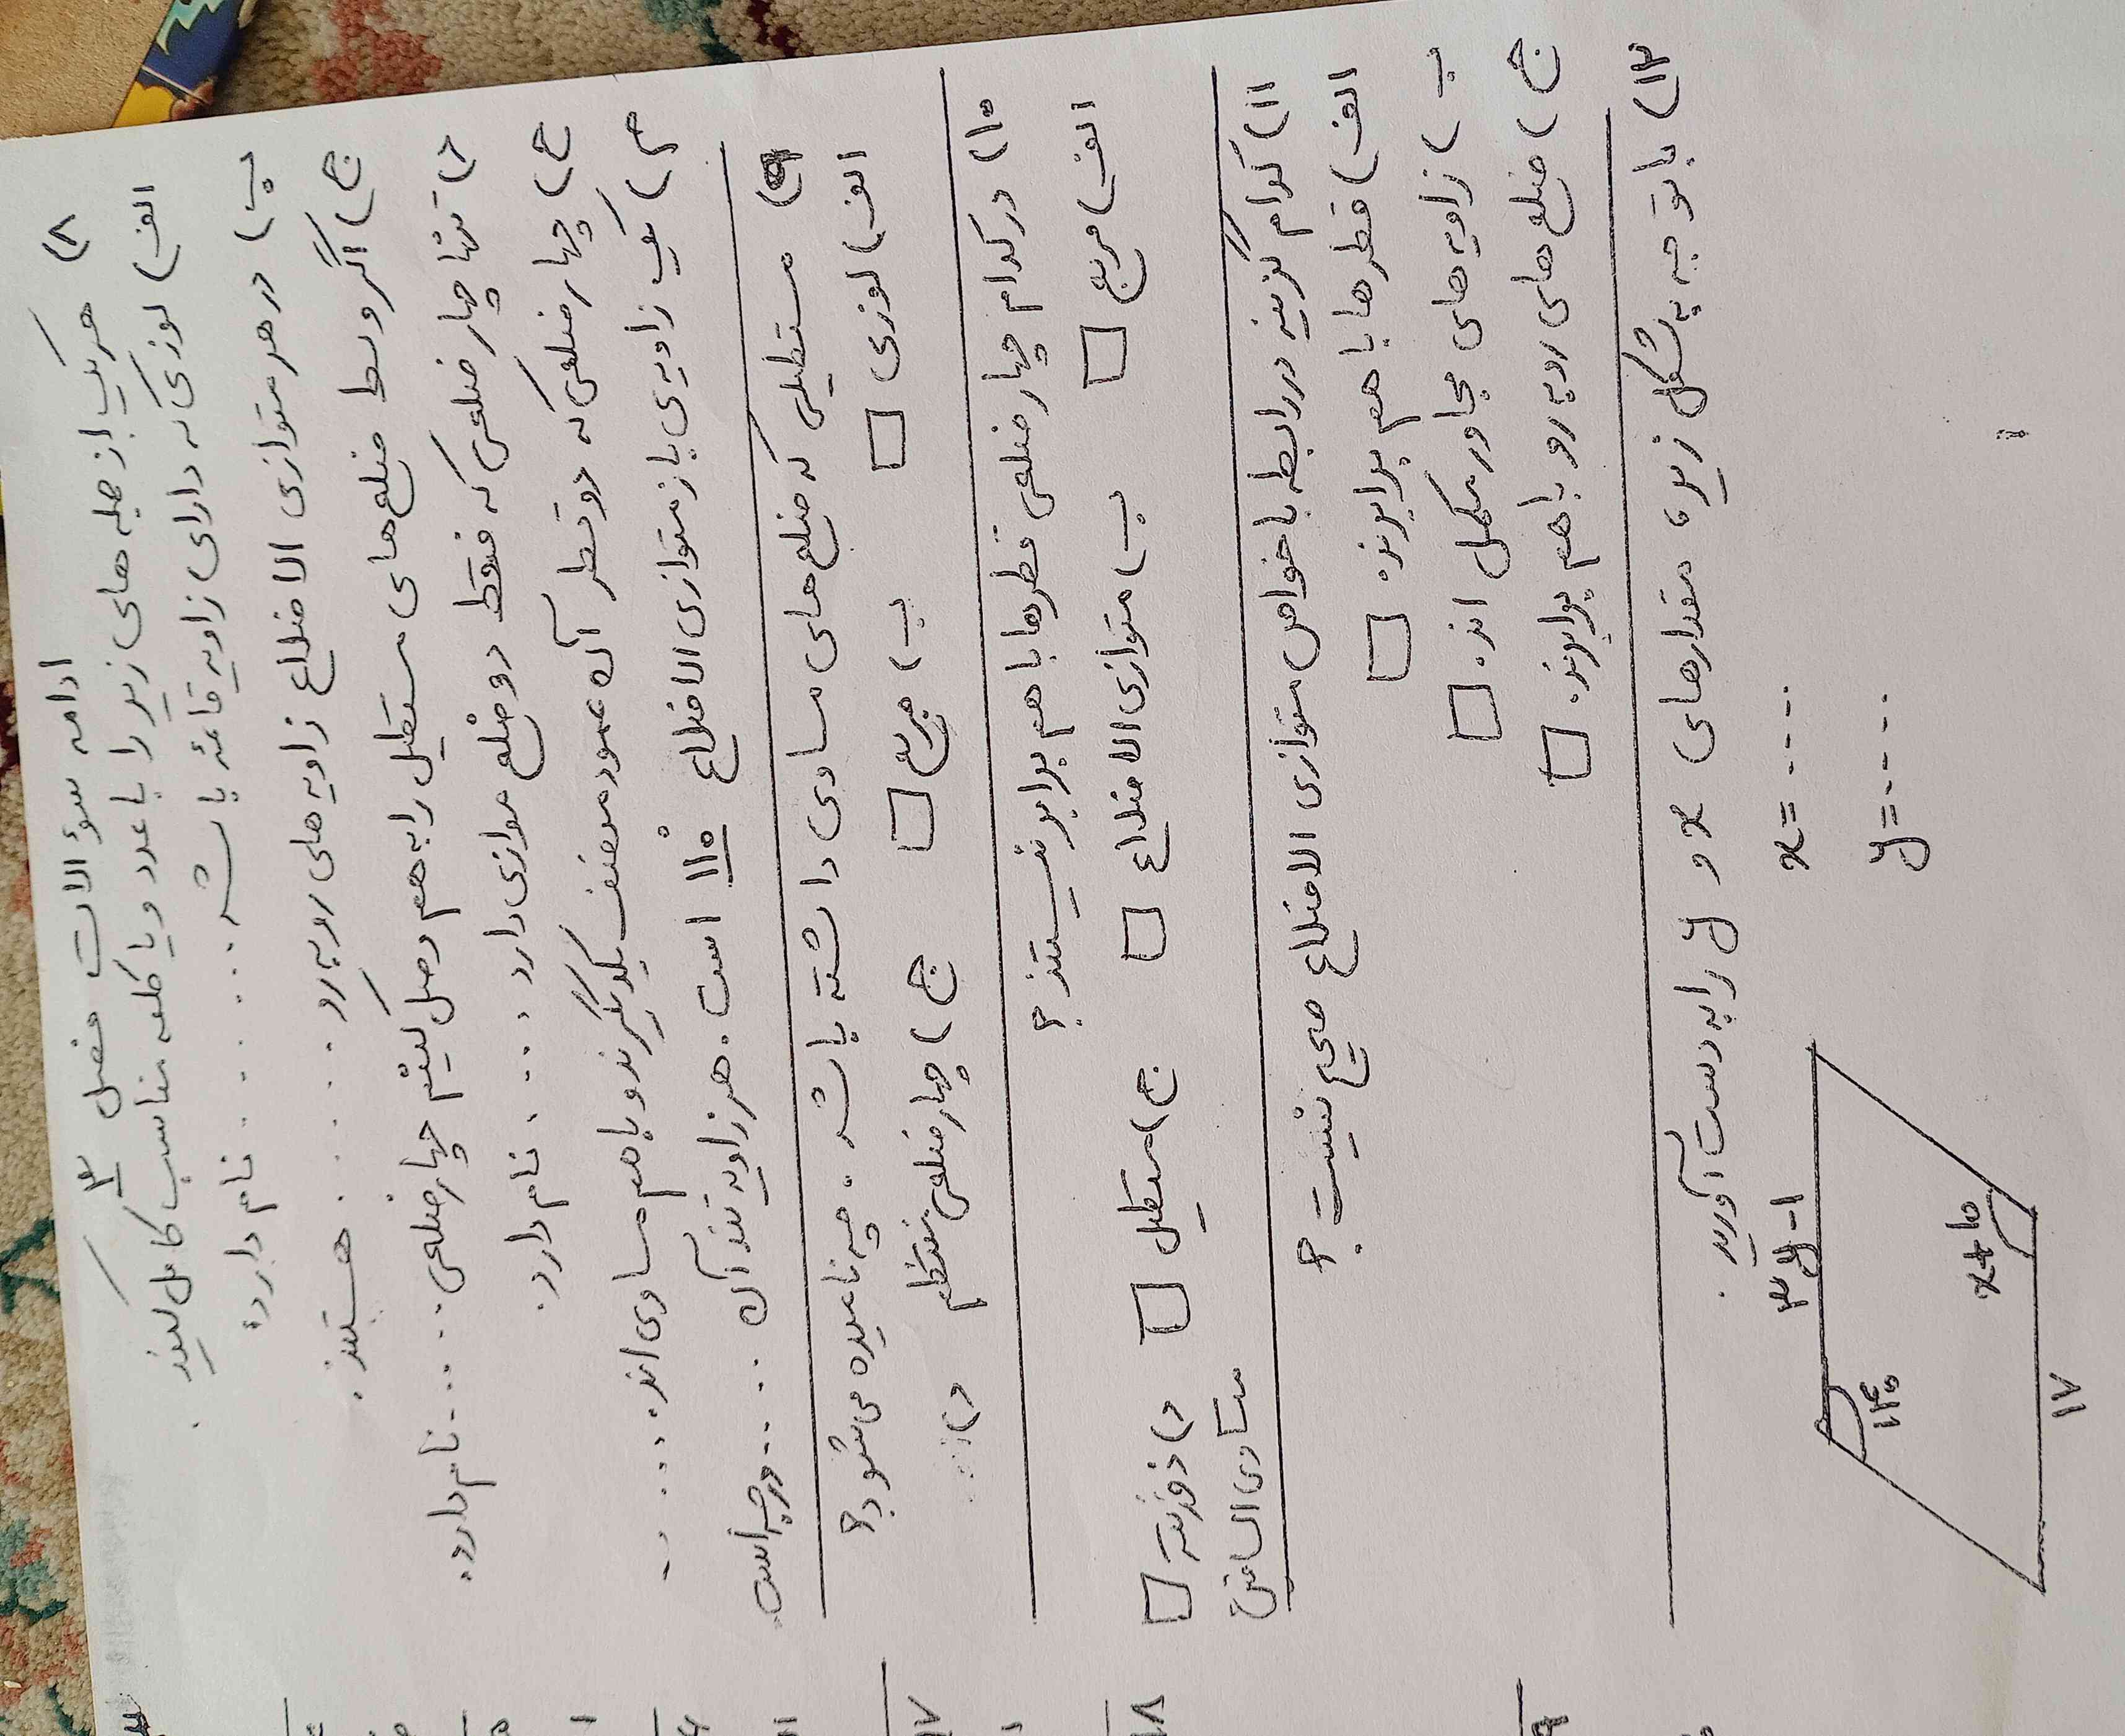 ادامه سؤالات فصل ۳
۸) هریک از جمله های زیر را با عدد و یا کلمه مناسب کامل کنید.
الف) لوزی که دارای زاویه قائمه باشد ........ نام دارد.
ب) در هر متوازی الاضلاع زاویه های روبه رو ........ هستند.
ج) اگر وسط ضلع های مستطیل را به هم وصل کنیم چهارضلعی ...... نام دارد.
د) تنها چهارضلعی که فقط دو ضلع موازی دارد ...... نام دارد.
ح) چهارضلعی که دو قطر آن عمود منصف یکدیگرند و باهم مساوی اند. ......
م) یک زاویه ی باز متوازی الاضلاع ۱۱۰° است. هر زاویه تند آن ...... درجه است.
۹) مستطیلی که ضلع های مساوی داشته باشد. چه نامیده می شود؟
الف) لوزی □ ب) مربع □ ج) چهارضلعی منتظم د)
۱۰) در کدام چهارضلعی قطرها باهم برابر نیستند؟
الف) مربع □ ب) متوازی الاضلاع □ ج) مستطیل □ د) ذوزنقه □
متساوی الساقین
۱۱) کدام گزینه در رابطه با خواص متوازی الاضلاع صحیح نیست؟
الف) قطرها با هم برابرند. □
ب) زاویه های مجاور مکمل اند. □
ج) ضلع های روبه رو باهم برابرند. □
۱۲) باتوجه به شکل زیر، مقدارهای x و y را به دست آورید.
x = .....
y = .....
۳y-۱
۱۳۰°
x+۲۵
۱۷
۱۷
۱۸